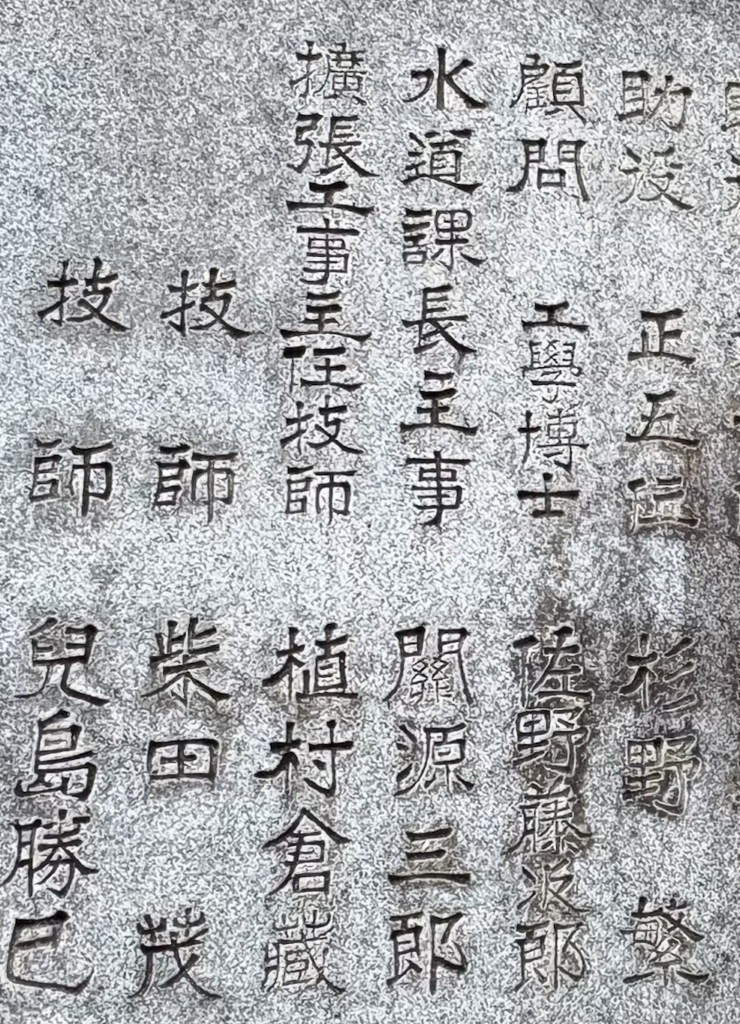 助役 正五位 杉野繁
顧問 工學博士 佐野藤次郎
水道課長主事 關源三郎
擴張工事主任技師 植村倉藏
技師 柴田茂
技師 兒島勝巳